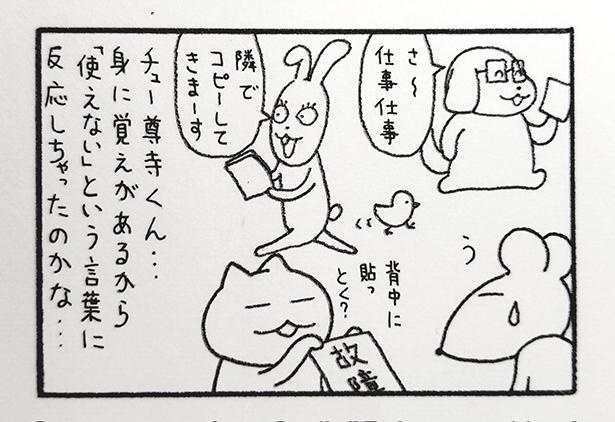 さ〜
仕事仕事
隣で
コピーして
きまーす
チュー尊寺くん…
身に覚えがあるから
「使えない」という言葉に
反応しちゃったのかな…
う
背中に
貼っ
とく?
故障